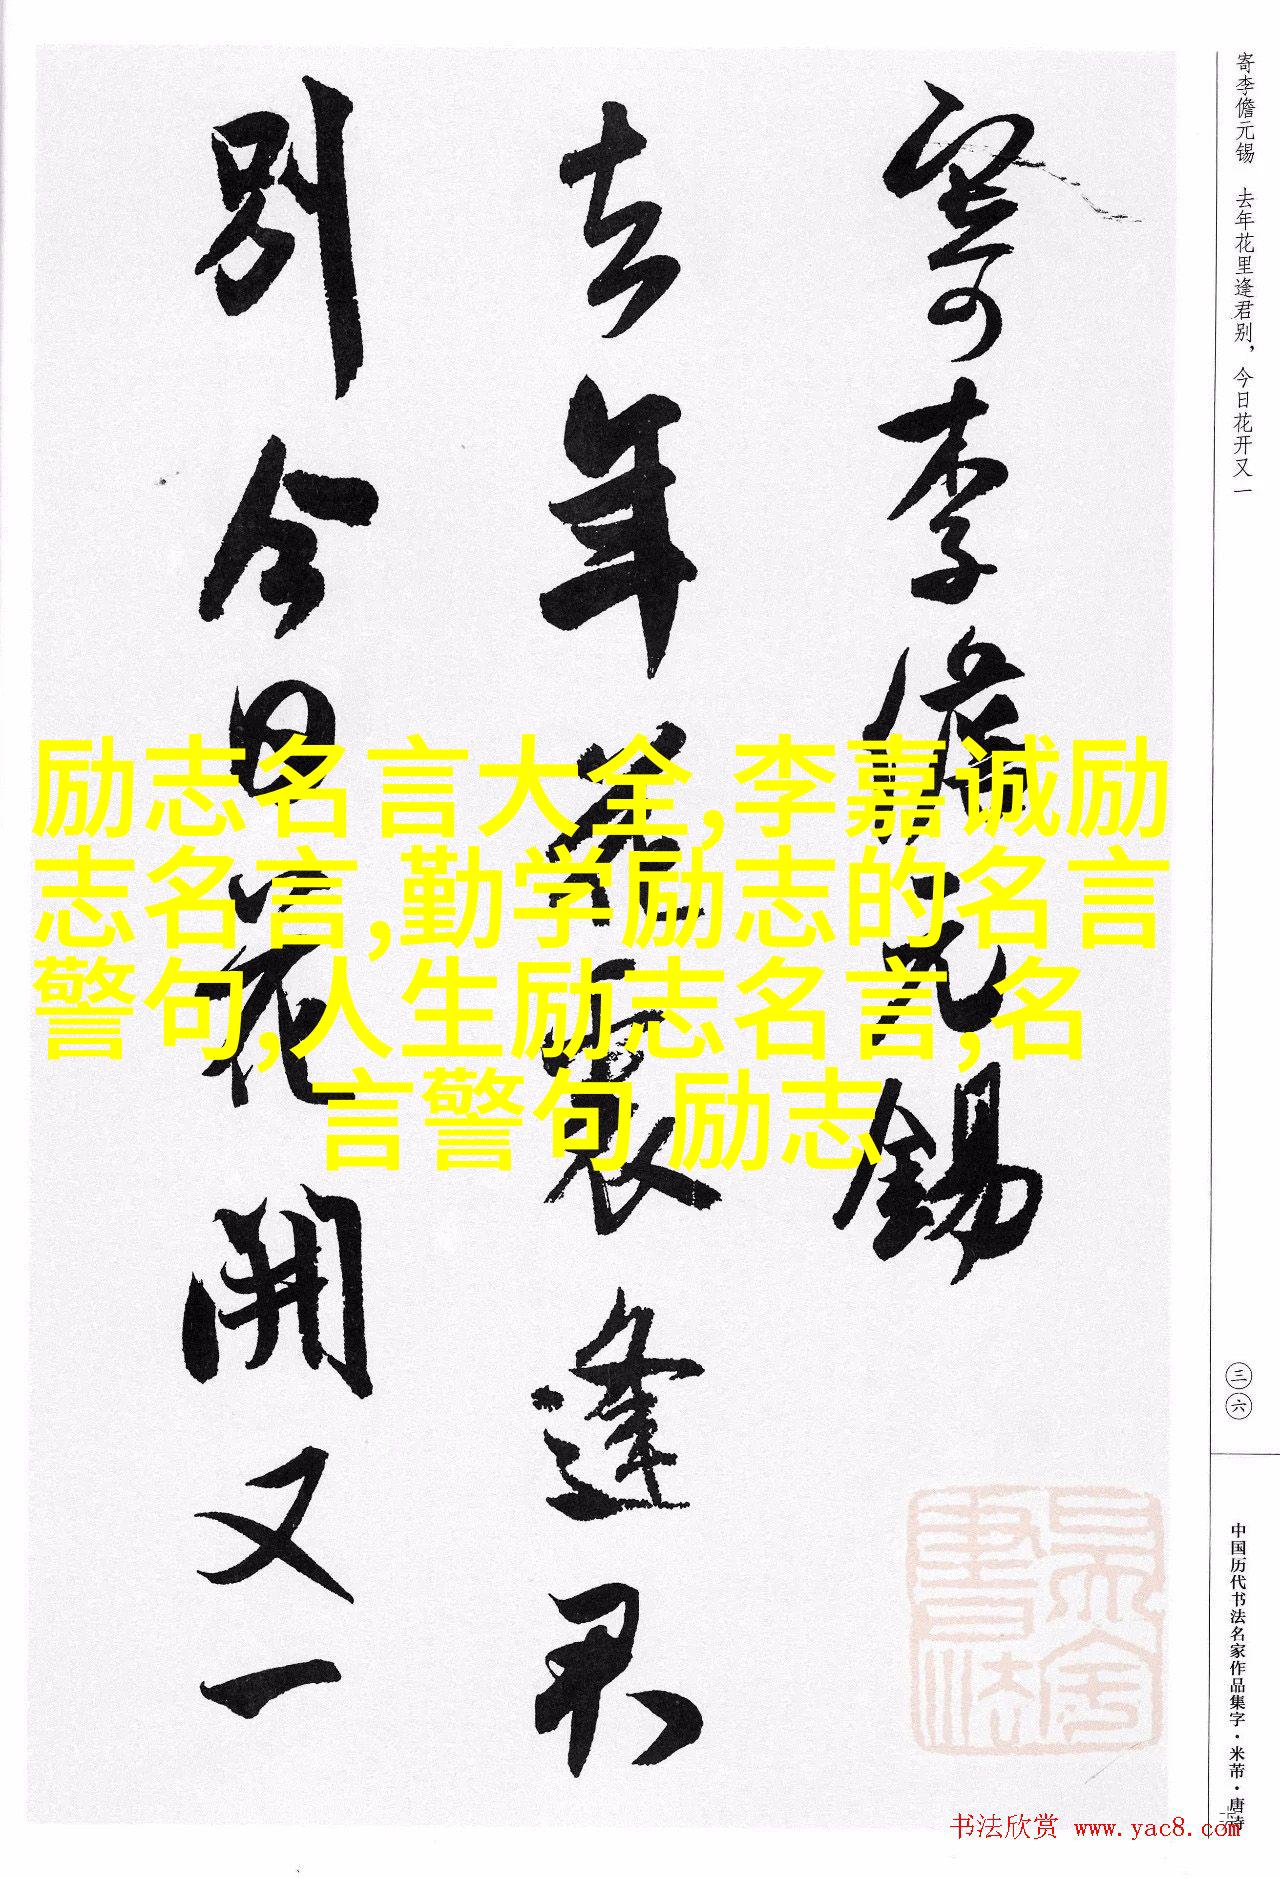 寄李儋元锡　去年花里逢君别，今日花开又一
寄李儋元錫
去年花裏逢君
别今日花開又一
励志名言大全,李嘉诚励
志名言,勤学励志的名言
警句,人生励志名言,名
言警句 励志
三六
中国历代书法名家作品集字·米芾·唐诗
书法欣赏 www.yac8.com